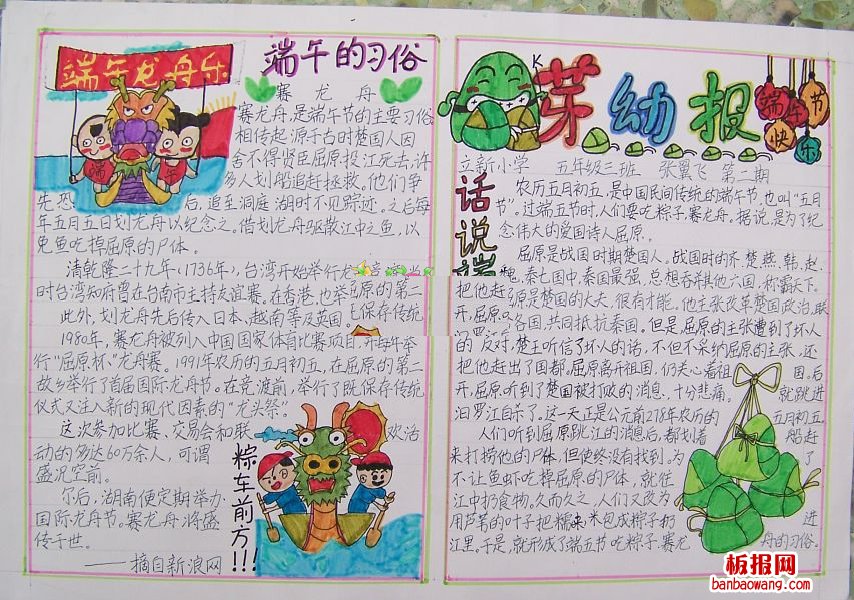 端午龙舟乐
端午的习俗
赛龙舟
赛龙舟,是端午节的主要习俗
相传起源于古时楚国人因
舍不得贤臣屈原投江死去,许
多人划船追赶拯救。他们争
先恐后,追至洞庭湖时不见踪迹。之后每
年五月五日划龙舟以纪念之。借划龙舟驱散江中之鱼,以
免鱼吃掉屈原的尸体。
清乾隆二十九年(1736年),台湾开始举行龙
时台湾知府曾在台南市主持友谊赛。在香港,也举
此外,划龙舟先后传入日本、越南等及英国。
原的第二
保存传统
1980年,赛龙舟被列入中国国家体育比赛项目,并每年举
行"屈原杯"龙舟赛。1991年农历的五月初五,在屈原的第二
故乡举行了首届国际龙舟节。在竞渡前,举行了既保存传统
仪式又注入新的现代因素的"龙头祭。"
这次参加比赛、交易会和联欢活
动的多达60万余人,可谓
盛况空前。
尔后,湖南便定期举办
国际龙舟节。赛龙舟将盛
传于世。
——摘自新浪网
粽车前方!!!
K
芽幼报
端午节
快乐
立新小学 五年级三班 张翼飞 第二期
话说端
农历五月初五,是中国民间传统的端午节,也叫"五月
节"。过端五节时,人们要吃粽子,赛龙舟。据说,是为了纪
念伟大的爱国诗人屈原。
屈原是战国时期楚国人。战国时的齐、楚、燕、韩、赵、
魏、秦七国中,秦国最强,总想吞并其他六国,称霸天下。
把他赶
屈原是楚国的大夫,很有才能。他主张改革楚国政治,联
开,屈原
各国,共同抵抗秦国。但是,屈原的主张遭到了坏人
的反对,楚王听信了坏人的话,不但不采纳屈原的主张,还
把他赶出了国都。屈原离开祖国,仍关心着祖国。后
开,屈原听到了楚国被打败的消息,十分悲痛。就跳进
汨罗江自杀了。这一天正是公元前278年农历的五月初五
人们听到屈原跳江的消息后,都划着船赶
来打捞他的尸体,但使终没有找到。为了
不让鱼虾吃掉屈原的尸体,就往
江中扔食物。久而久之,人们又改为
用芦苇的叶子把糯米包成粽子扔进
江里。于是,就形成了端五节吃粽子、赛龙舟的习俗。
板报网
banbaowang.com